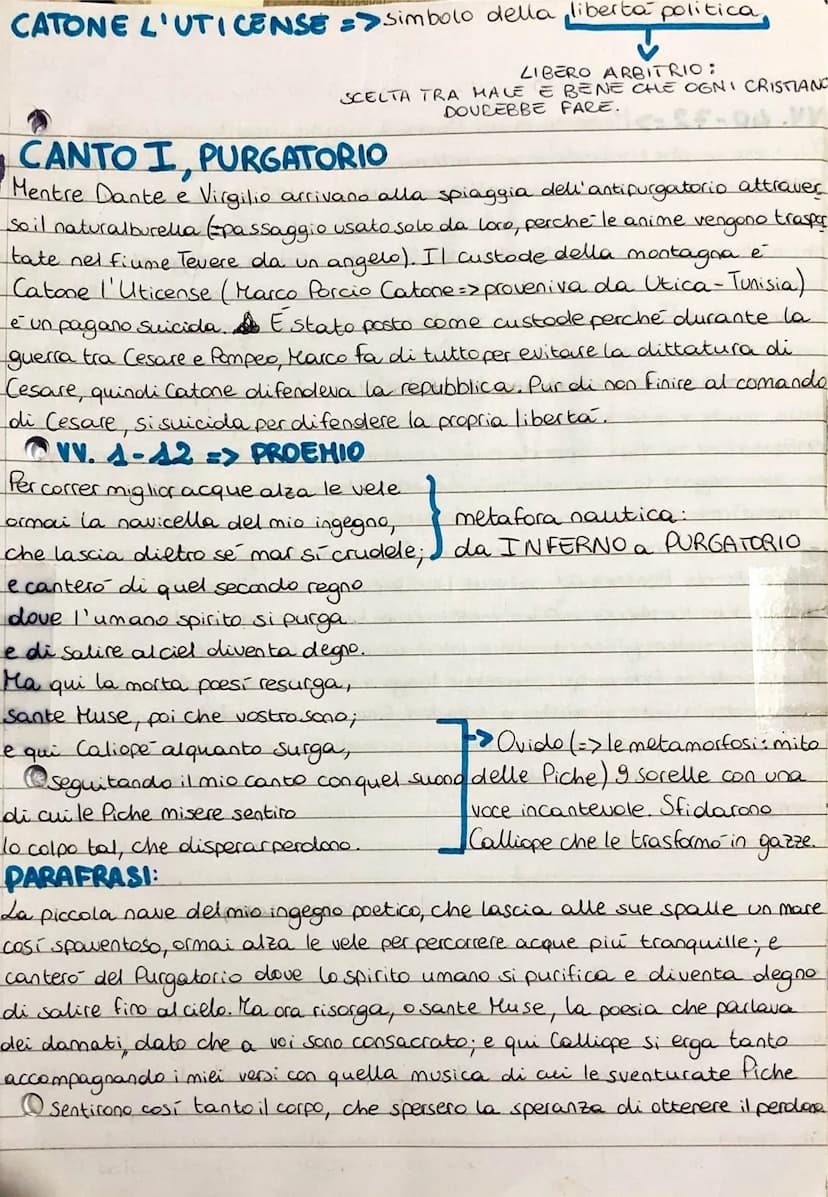 CATONE L'UTICENSE => simbolo della libertà politica
LIBERO ARBITRIO:
SCELTA TRA MALE E BENE CHE OGNI CRISTIANO
DOVREBBE FARE.
CANTO I, PURGATORIO
Mentre Dante e Virgilio arrivano alla spiaggia dell'antipurgatorio attraver
so il naturalburella (=passaggio usato solo da loro, perchè le anime vengono traspor
tate nel fiume Tevere da un angelo). Il custode della montagna è
Catone l'Uticense (Marco Porcio Catone => proveniva da Utica - Tunisia)
è un pagano suicida. È stato posto come custode perchè durante la
guerra tra Cesare e Pompeo, Marco fa di tutto per evitare la dittatura di
Cesare, quindi Catone difendeva la repubblica. Pur di non finire al comando
di Cesare, si suicida per difendere la propria libertà.
VV. 1-12 => PROEMIO
Per correr miglior acque alza le vele
ormai la navicella del mio ingegno,
che lascia dietro sé mar sì crudele;
metafora nautica:
da INFERNO a PURGATORIO
e canterò di quel secondo regno
dove l'umano spirito si purga
e di salire al ciel diventa degno.
Ma qui la morta poesì resurga,
sante Muse, poi che vostro sono;
e qui Caliopè alquanto surga,
seguitando il mio canto con quel suono
di cui le Piche misere sentiro
lo colpo tal, che disperar perdono.
-> Ovidio (=> le metamorfosi: mito
delle Piche) 9 sorelle con una
voce incantevole. Sfidarono
Calliope che le trasformò in gazze.
PARAFRASI:
La piccola nave del mio ingegno poetico, che lascia alle sue spalle un mare
così spaventoso, ormai alza le vele per percorrere acque più tranquille; e
canterò del Purgatorio dove lo spirito umano si purifica e diventa degno
di salire fino al cielo. Ma ora risorga, o sante Muse, la poesia che parlava
dei dannati, dato che a voi sono consacrato; e qui Calliope si erga tanto
accompagnando i miei versi con quella musica di cui le sventurate Piche
sentirono così tanto il corpo, che spersero la speranza di ottenere il perdono